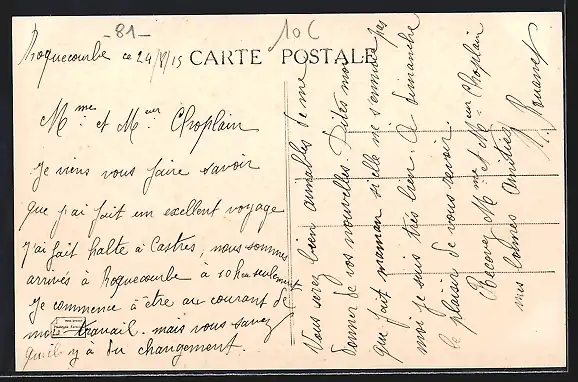 -81-
10c
Roquecourbe ce 24/8/15
CARTE POSTALE
Mme et Meur Choplain
Je viens vous faire savoir
que j'ai fait un excellent voyage
J'ai fait halte à Castres, nous sommes
arrivés à Roquecourbe à 10h seulement
Je commence à être au courant de
mon travail. mais vous savez
qu'il y à du changement.
Vous serez bien aimables de me
donner de vos nouvelles. Dites moi
que fait maman si elle ne s'ennuie pas
moi je suis très bien. A dimanche
le plaisir de vous revoir.
Recevez Mme et Meur Choplain
mes bonnes amitiés